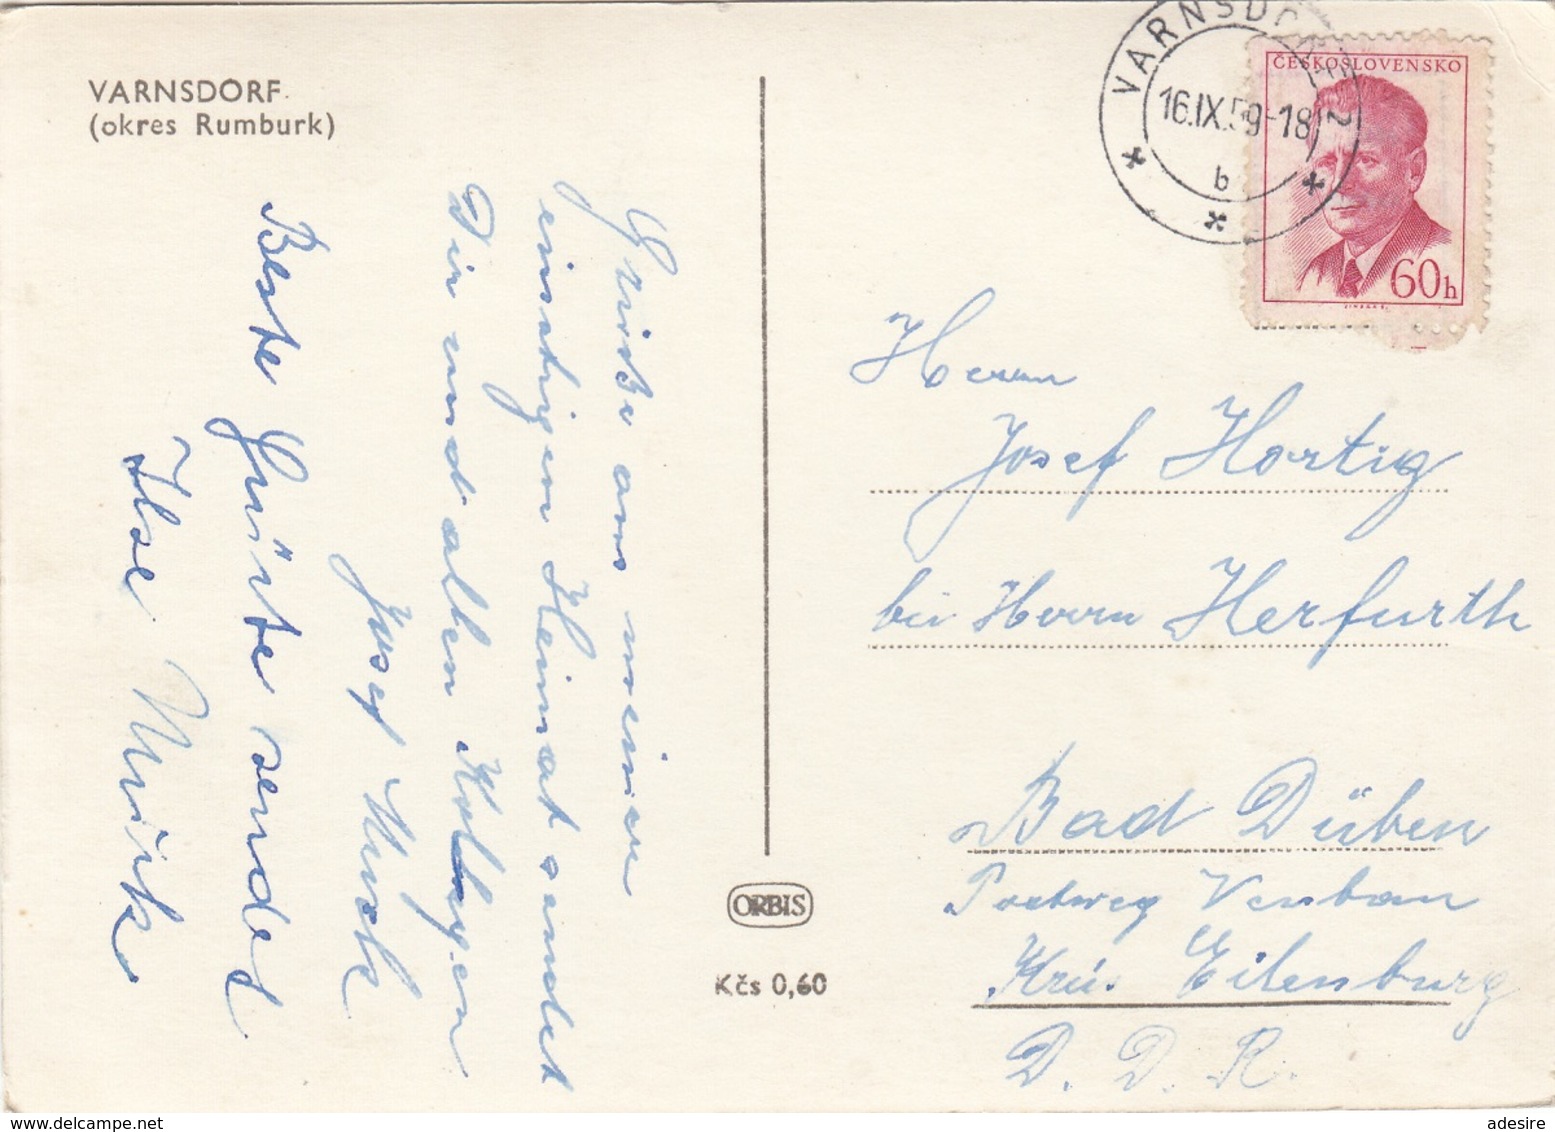 VARNSDORF
(okres Rumburk)
Grüße aus meiner
einstigen Heimat sendet
Dir und allen Kollegen
Josef
Beste Grüße sendet
Ilse
VARNSDORF 2
16.IX.59-18
b
ČESKOSLOVENSKO
60h
Herrn
Josef Hortig
bei Herrn Herfurth
Bad Düben
Kreis Eilenburg
D. D. R.
ORBIS
Kčs 0,60
www.delcampe.net
adesire